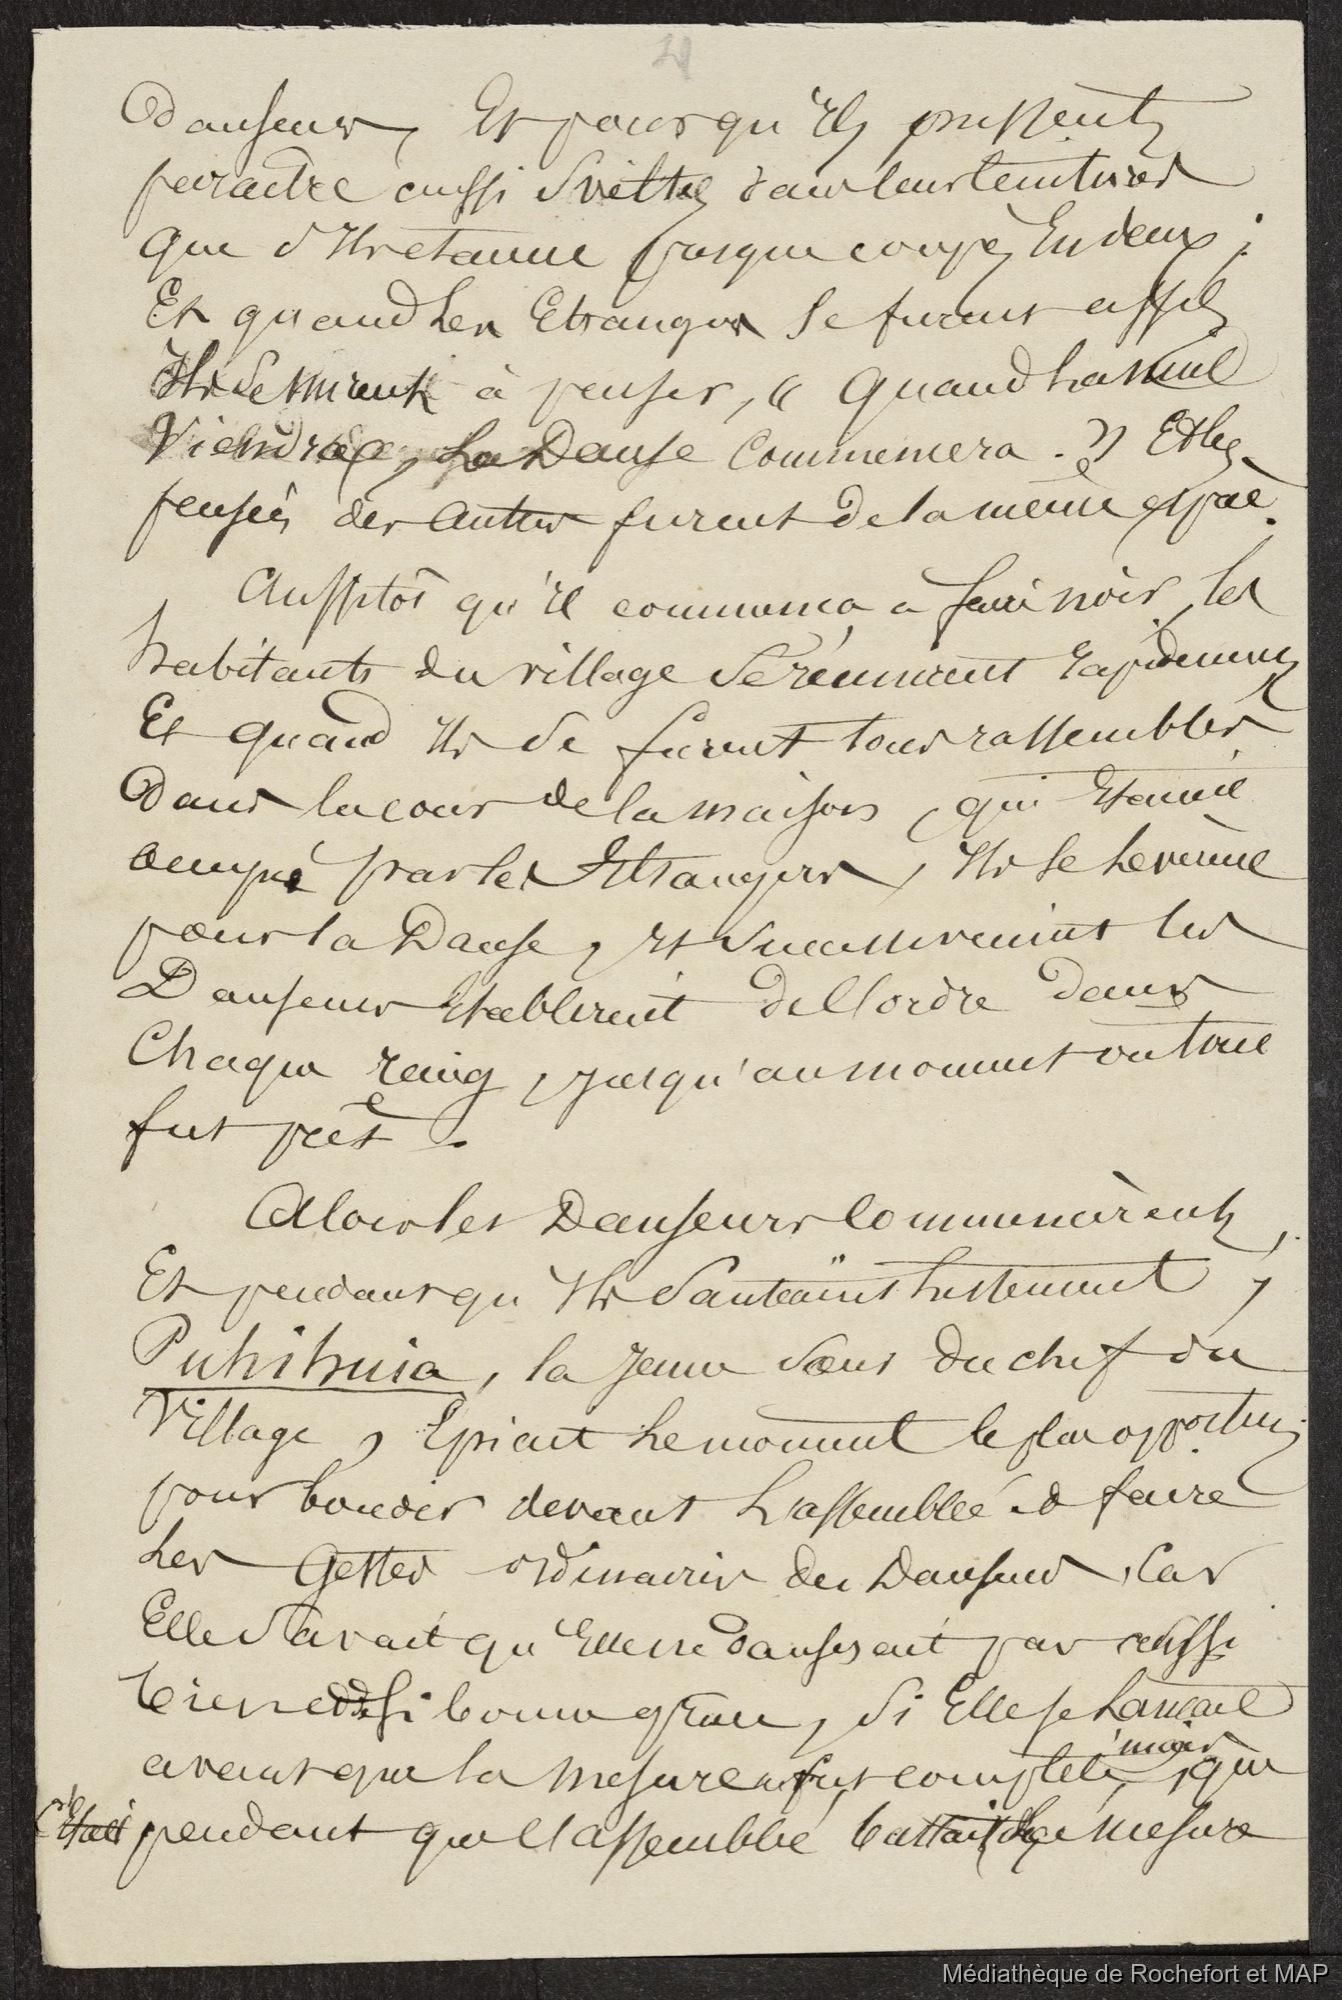 21
Danseurs, Et pour qu'Ils pussent
paraitre aussi Sveltes dans leurs ceintures
que s'Ils etaient presque coupés En deux ;
Et quand Les Etrangers Se furent assis
Ils Se mirent à penser, " Quand La nuit
Viendra, La Danse Commencera . " Et les
pensées des Autres furent de la même espèce.
Aussitôt qu'Il commença a faire noir, les
habitants du village Se réunirent rapidement
Et quand Ils Se furent tous rassemblés
Dans la cour de la maison, qui Etait
occupée par les Etrangers, Ils Se Levèrent
pour la Danse, et Successivement les
Danseurs Etablirent de l'ordre dans
Chaque rang, jusqu'au moment ou tout
fut prêt .
Alors les Danseurs Commencèrent,
Et pendant qu'Ils Sautaient Lestement,
Puhihuia, la jeune Sœur du chef du
Village, Epiait Le moment le plus opportun
pour bondir devant L'assemblée & faire
Les Gestes ordinaires des Danseurs, Car
Elle Savait qu'Elle ne danserait pas aussi
bien ni de Si bonne grace, Si Elle se Lançait
avant que la mesure fut complète, mais, que
C'Etait pendant que l'assemblée battait la mesure
Médiathèque de Rochefort et MAP